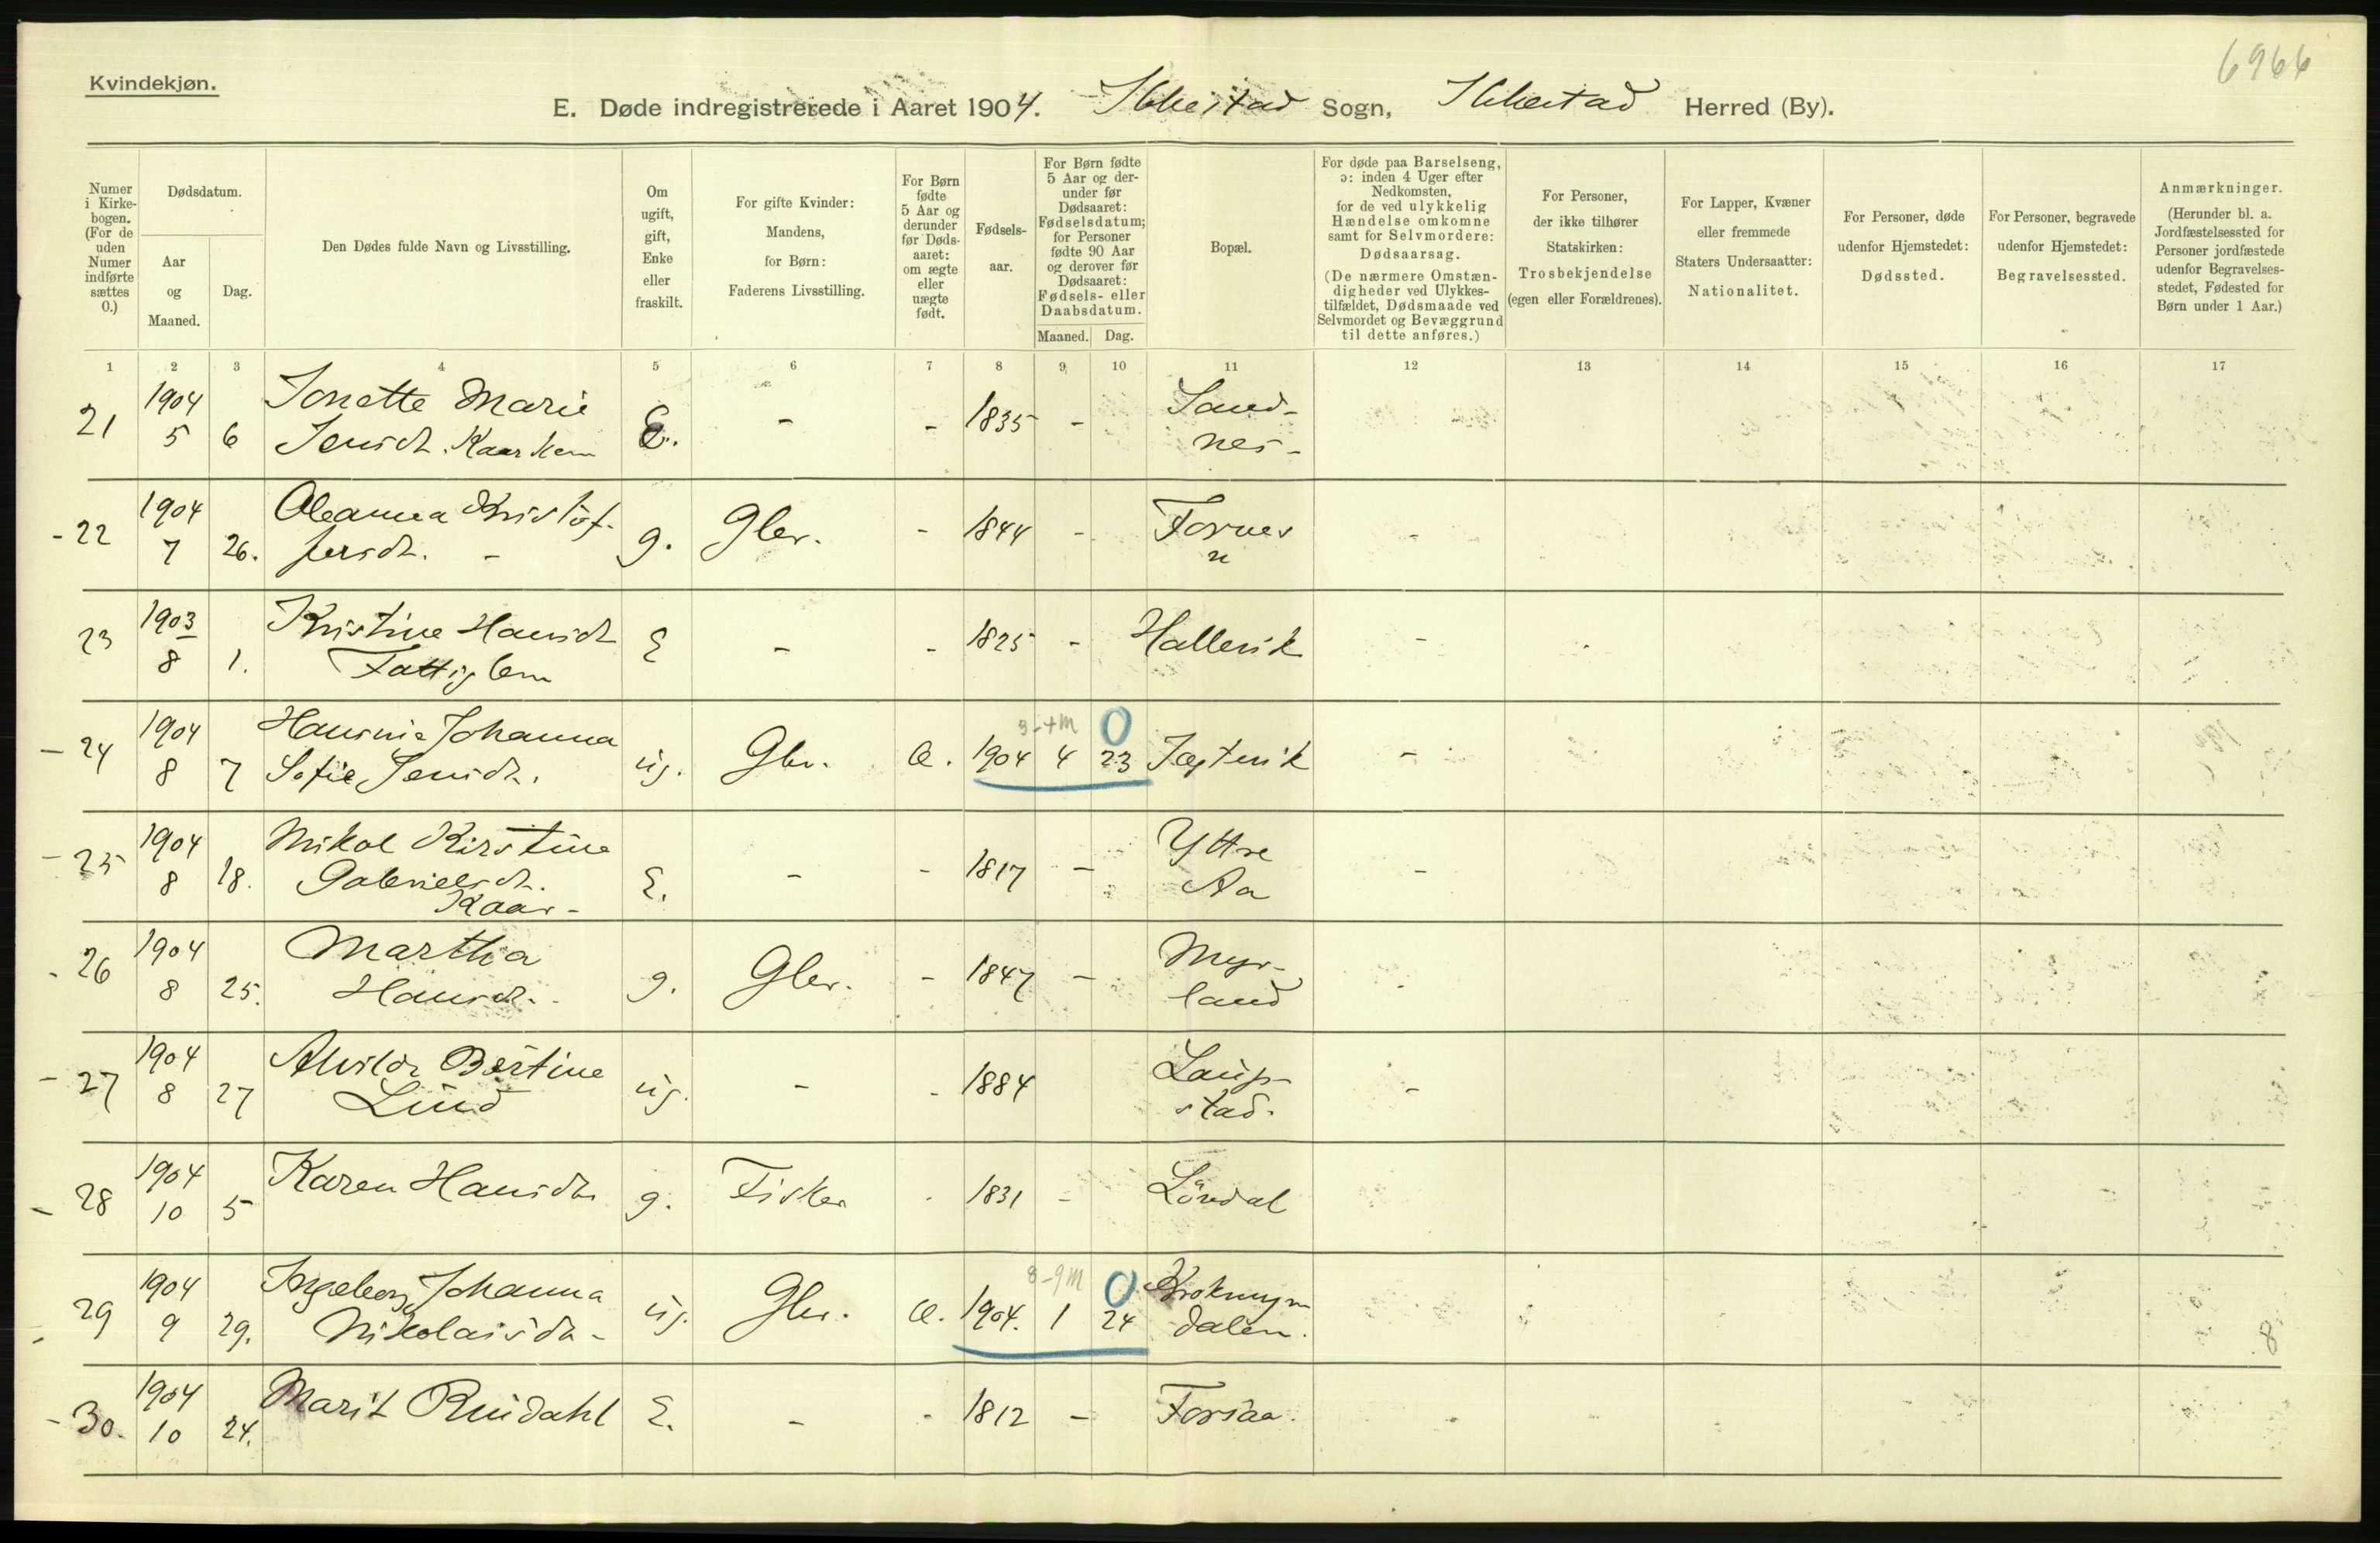 6966
Kvindekjøn.
E. Døde indregistrerede i Aaret 1904. Ibbestad Sogn, Ibbestad Herred (By).
Numer i Kirkebogen. (For de uden Numer indførte sættes 0.)
Dødsdatum.
Aar og Maaned.
Dag.
Den Dødes fulde Navn og Livsstilling.
Om ugift, gift, Enke eller fraskilt.
For gifte Kvinder: Mandens, for Børn: Faderens Livsstilling.
For Børn fødte 5 Aar og derunder før Dødsaaret: om ægte eller uægte født.
Fødselsaar.
For Børn fødte 5 Aar og derunder før Dødsaaret: Fødselsdatum; for Personer fødte 90 Aar og derover før Dødsaaret: Fødsels- eller Daabsdatum.
Maaned. Dag.
Bopæl.
For døde paa Barselseng, ɔ: inden 4 Uger efter Nedkomsten, for de ved ulykkelig Hændelse omkomne samt for Selvmordere: Dødsaarsag. (De nærmere Omstændigheder ved Ulykkestilfældet, Dødsmaade ved Selvmordet og Bevæggrund til dette anføres.)
For Personer, der ikke tilhører Statskirken: Trosbekjendelse (egen eller Forældrenes).
For Lapper, Kvæner eller fremmede Staters Undersaatter: Nationalitet.
For Personer, døde udenfor Hjemstedet: Dødssted.
For Personer, begravede udenfor Hjemstedet: Begravelsessted.
Anmærkninger. (Herunder bl. a. Jordfæstelsessted for Personer jordfæstede udenfor Begravelsesstedet, Fødested for Børn under 1 Aar.)
1 2 3 4 5 6 7 8 9 10 11 12 13 14 15 16 17
21 1904 5 6 Jonette Marie Jensdt. E. - - 1835 - Sandnes -
- 22 1904 7 26. Oleanna Kristoffersdt. - g. Gbr. - 1844 - Fornes
23 1903 8 1. Kristine Hansdt Fattiglem E - - 1825 - Hallevik -
- 24 1904 8 7 Hansine Johanna Sofie Jensdt. ug. Gbr. e. 1904 4 23 Jægtvik -
3-4 M 0
- 25 1904 8 18. Nikol Kirstine Gabrielsdt. Kaar - E. - - 1817 - Yttre Aa -
- 26 1904 8 25. Martha Hansdt. g. Gbr. - 1847 - Myrland
- 27 1904 8 27 Alvilde Bertine Lund ug. - - 1884 Laupstad. -
- 28 1904 10 5 Karen Hansdt g. Fisker - 1831 - Løvdal
- 29 1904 9 29. Ingeborg Johanna Nikolaisdt - ug. Gbr. e. 1904. 1 24 Krokmyrdalen.
8-9 M 0
- 30. 1904 10 24. Marit Rundahl E. - - 1812 - Forsaa.